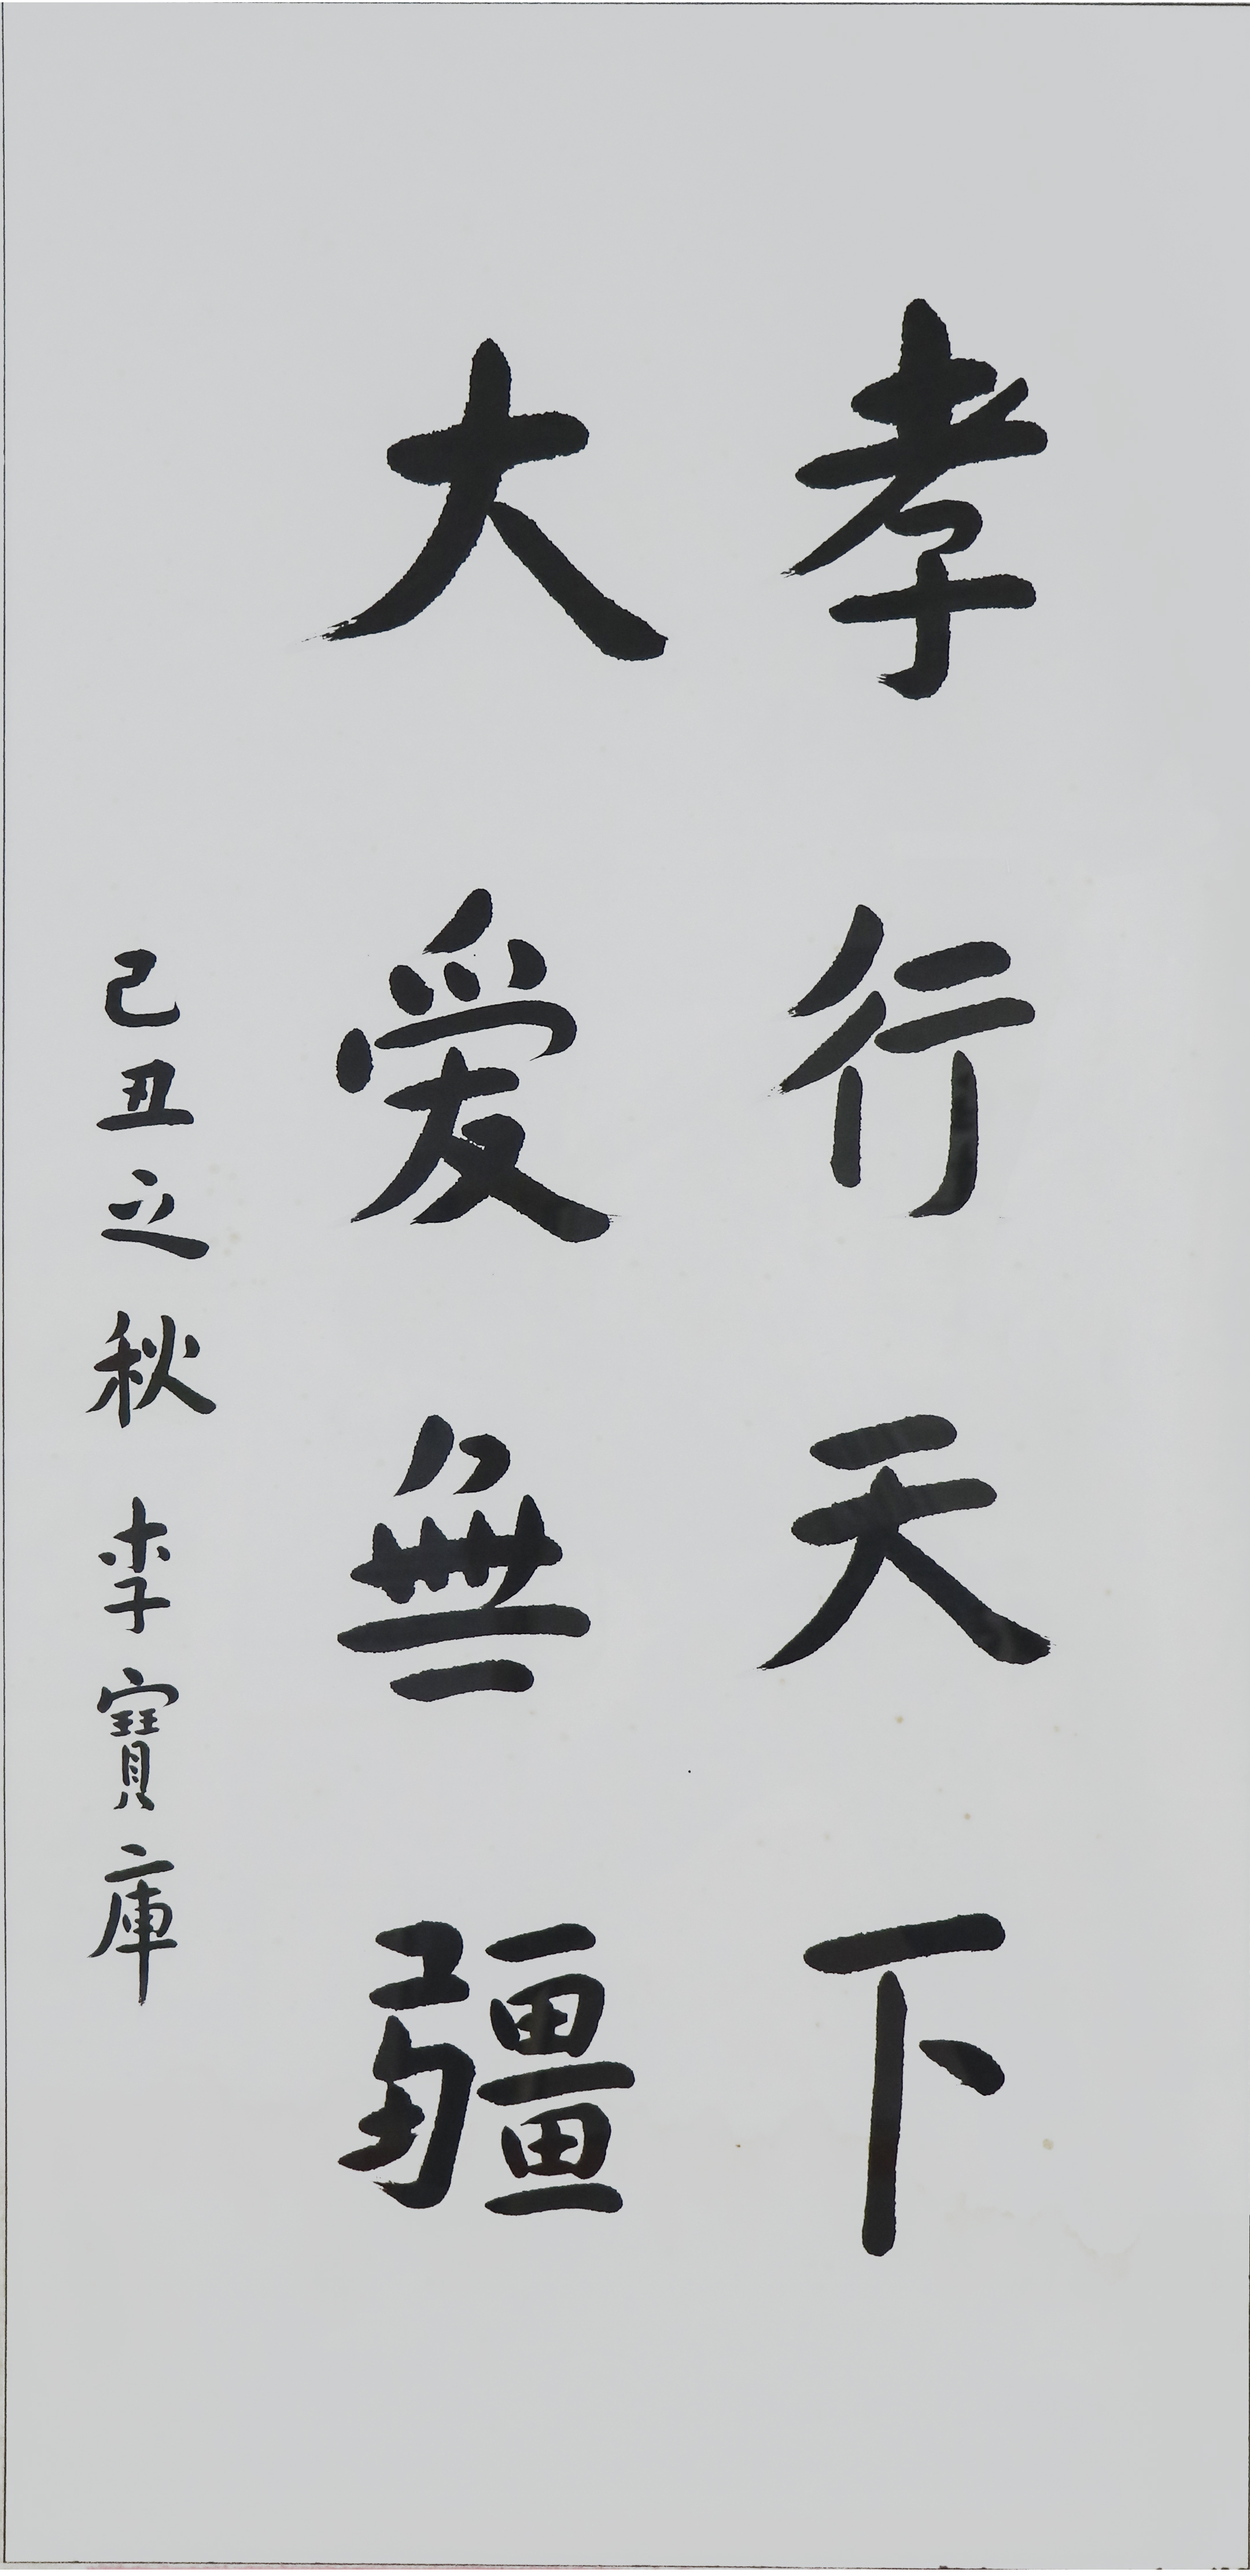 孝行天下
大爱無疆
己丑之秋 李寶庫